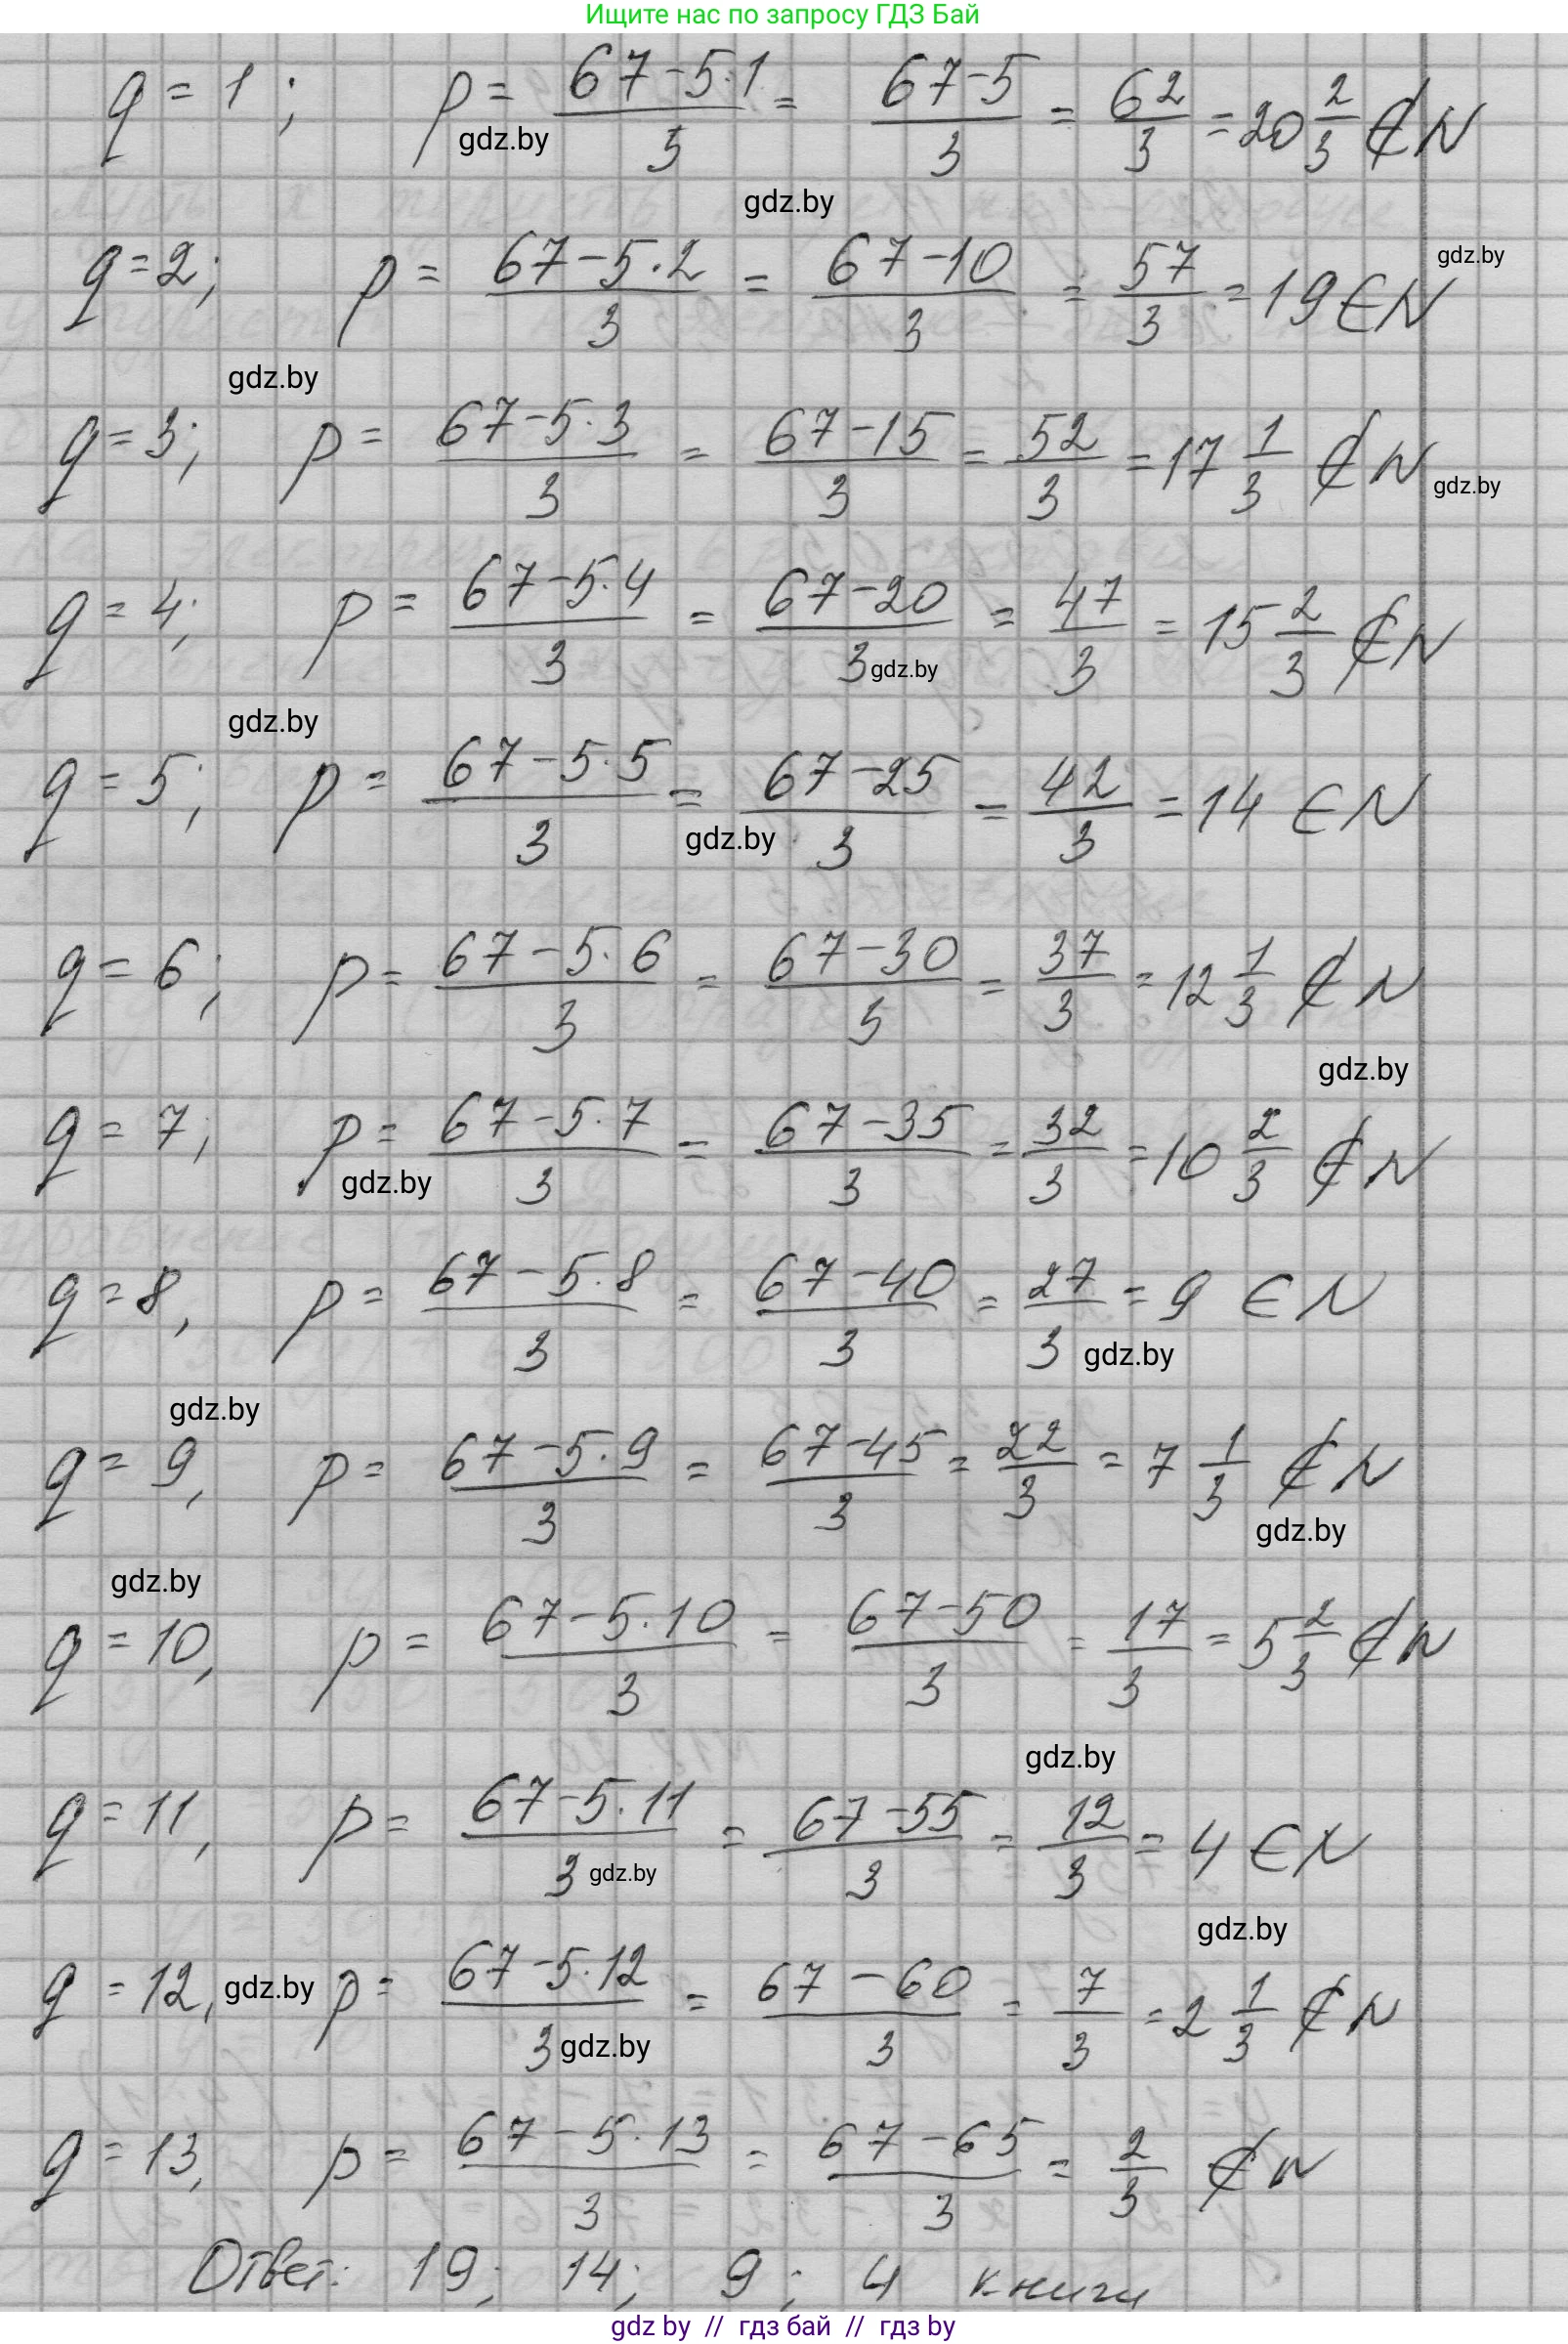 Ищите нас по запросу ГДЗ Бай
q = 1 ; p = (67-5·1)/3 = (67-5)/3 = 62/3 = 20 2/3 ∉ N
gdz.by
gdz.by
q = 2; p = (67-5·2)/3 = (67-10)/3 = 57/3 = 19 ∈ N
gdz.by
gdz.by
q = 3; p = (67-5·3)/3 = (67-15)/3 = 52/3 = 17 1/3 ∉ N
gdz.by
q = 4; p = (67-5·4)/3 = (67-20)/3 = 47/3 = 15 2/3 ∉ N
gdz.by
gdz.by
q = 5; p = (67-5·5)/3 = (67-25)/3 = 42/3 = 14 ∈ N
gdz.by
q = 6; p = (67-5·6)/3 = (67-30)/3 = 37/3 = 12 1/3 ∉ N
gdz.by
q = 7; p = (67-5·7)/3 = (67-35)/3 = 32/3 = 10 2/3 ∉ N
gdz.by
q = 8, p = (67-5·8)/3 = (67-40)/3 = 27/3 = 9 ∈ N
gdz.by
gdz.by
q = 9, p = (67-5·9)/3 = (67-45)/3 = 22/3 = 7 1/3 ∉ N
gdz.by
gdz.by
q = 10, p = (67-5·10)/3 = (67-50)/3 = 17/3 = 5 2/3 ∉ N
gdz.by
q = 11, p = (67-5·11)/3 = (67-55)/3 = 12/3 = 4 ∈ N
gdz.by
gdz.by
q = 12, p = (67-5·12)/3 = (67-60)/3 = 7/3 = 2 1/3 ∉ N
gdz.by
gdz.by
q = 13, p = (67-5·13)/3 = (67-65)/3 = 2/3 ∉ N
Ответ: 19; 14; 9; 4 книги
gdz by // гдз бай // гдз by